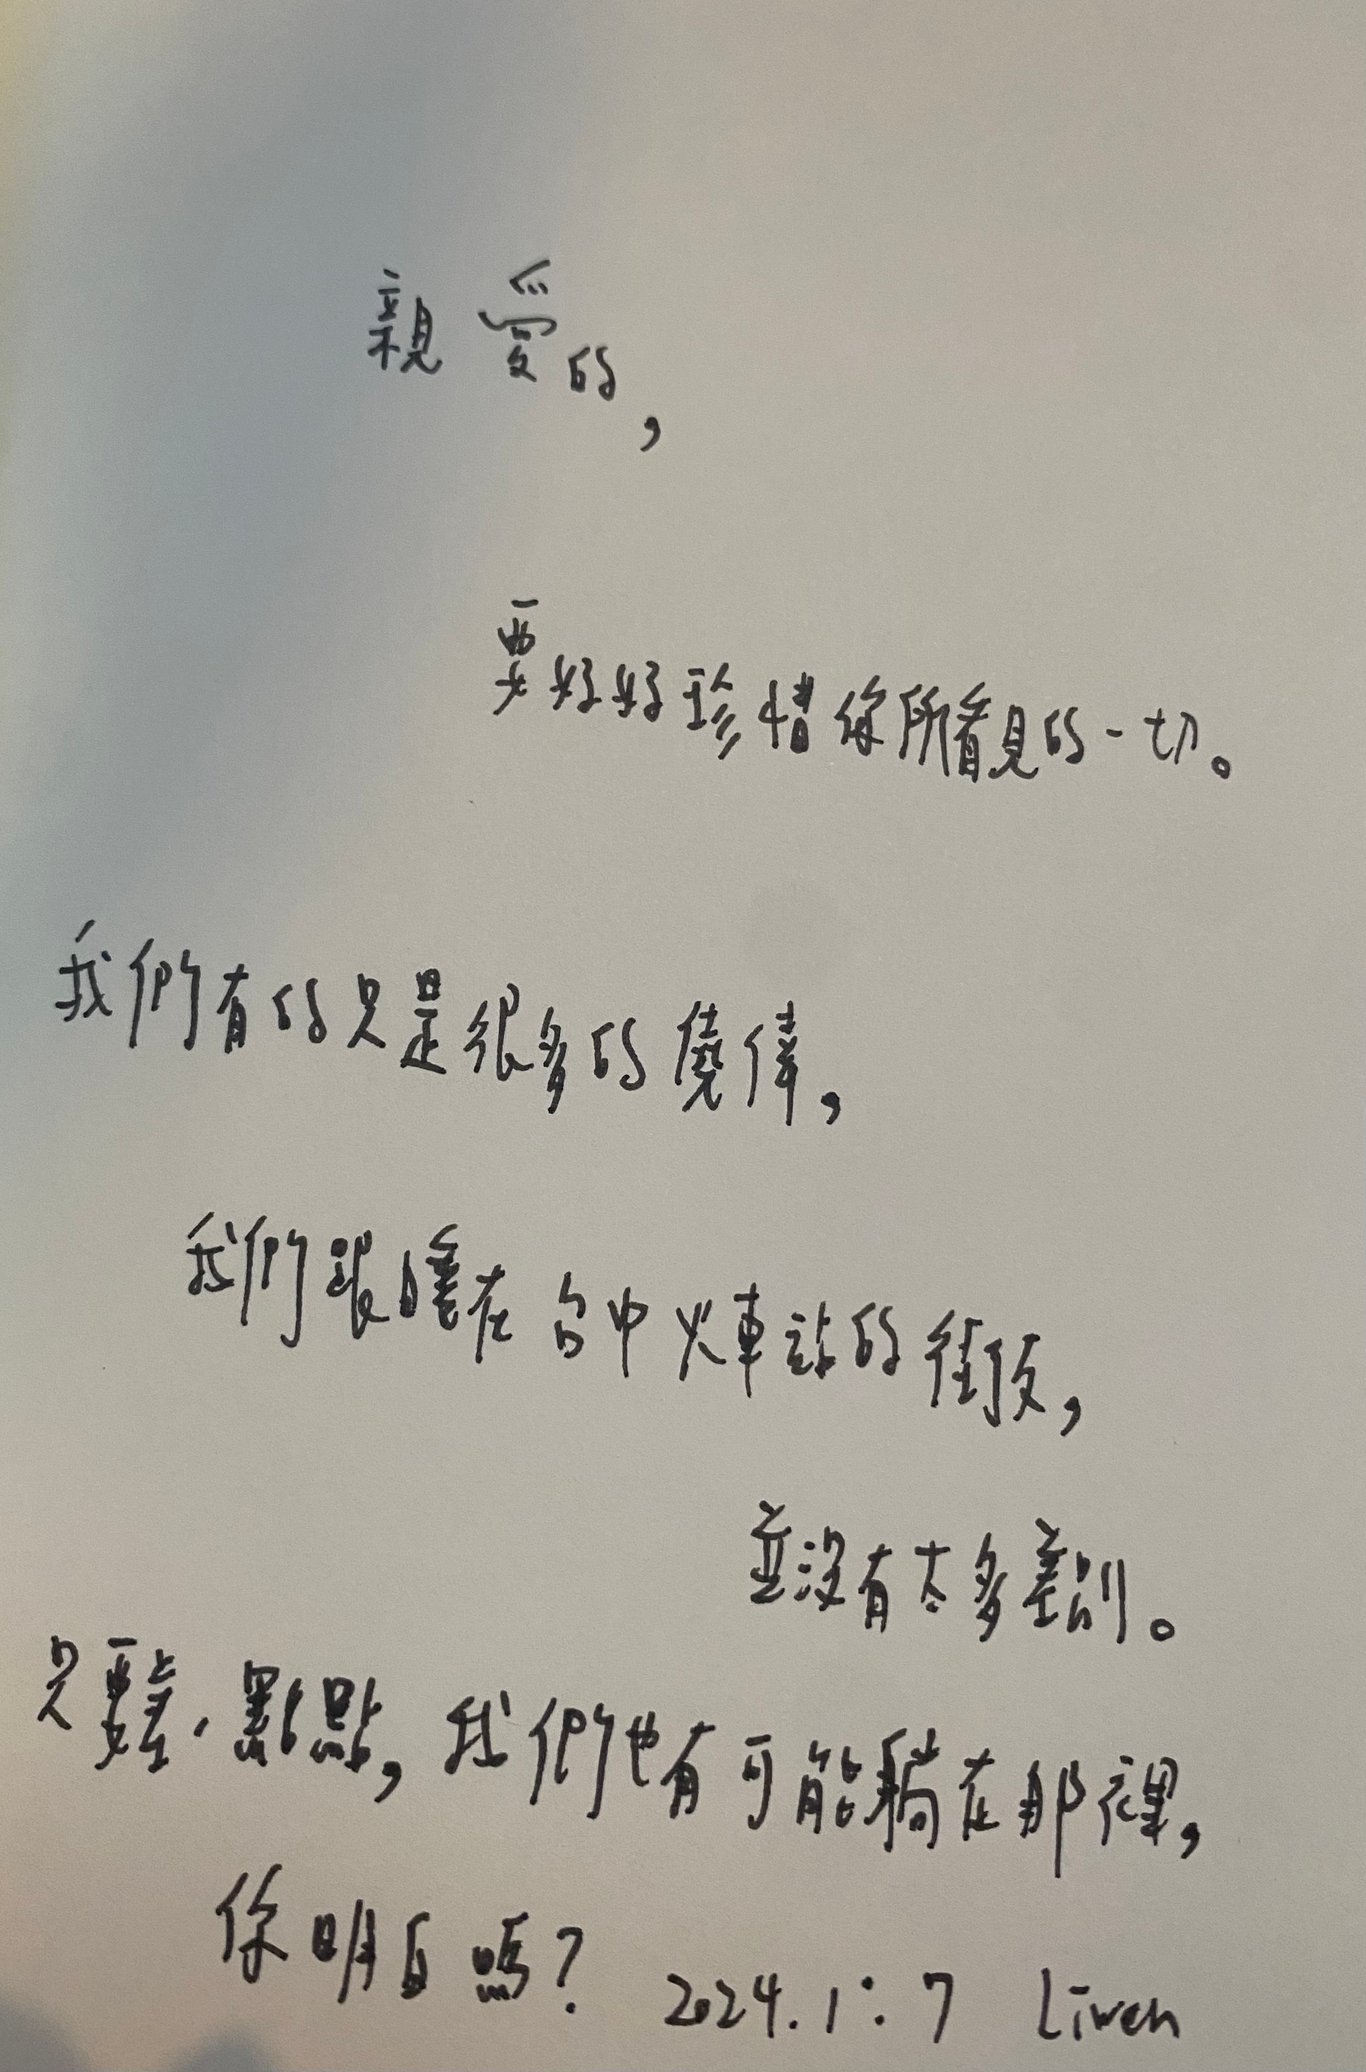 親愛的,
要好好珍惜你所看見的一切。
我們有的只是很多的僥倖,
我們跟睡在台中火車站的街友,
並沒有太多差別。
只要差一點點,我們也有可能躺在那裡,
你明白嗎? 2024.1:7 Liwen